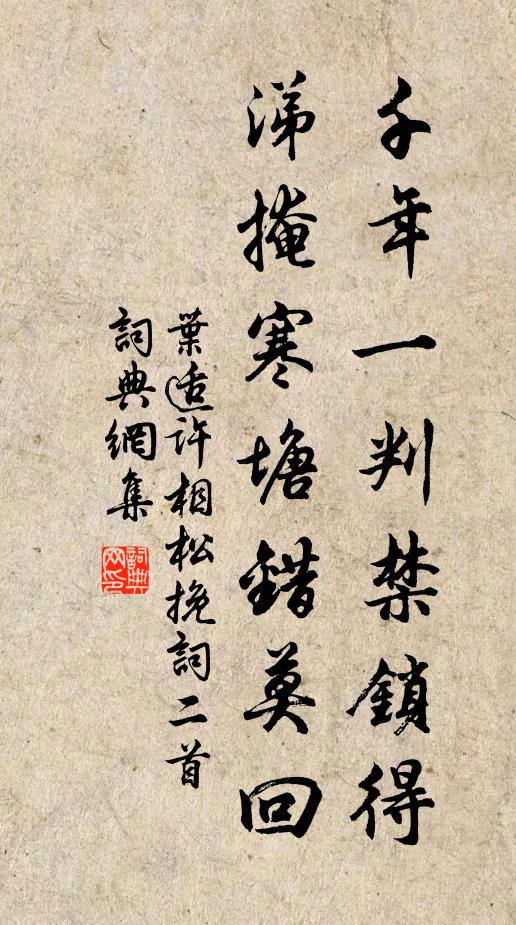 千年一判禁鎖得
涕掩寒塘錯莫回
葉适許相松挽詞二首
詞典網集
詞典网印